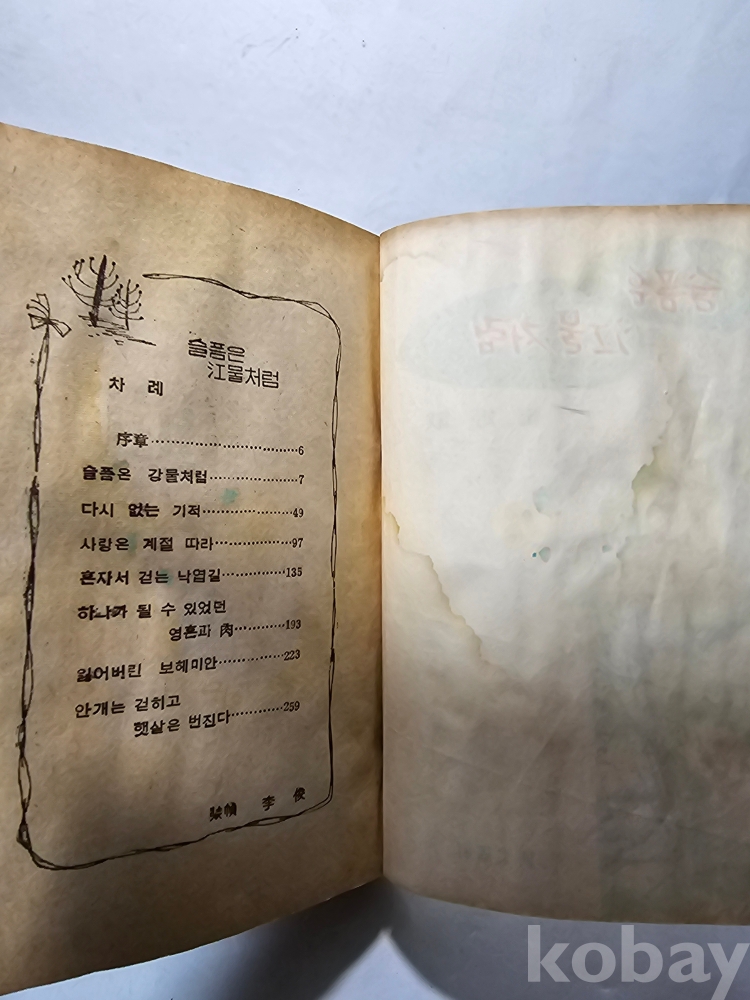 슬픔은
江물처럼
차 례
序章…………………………6
슬픔은 강물처럼……………7
다시 없는 기적……………49
사랑은 계절 따라…………97
혼자서 걷는 낙엽길………135
하나가 될 수 있었던
영혼과 肉………193
잃어버린 보헤미안………223
안개는 걷히고
햇살은 번진다………259
裝幀 李 俊
슬픔은
江물처럼
kobay